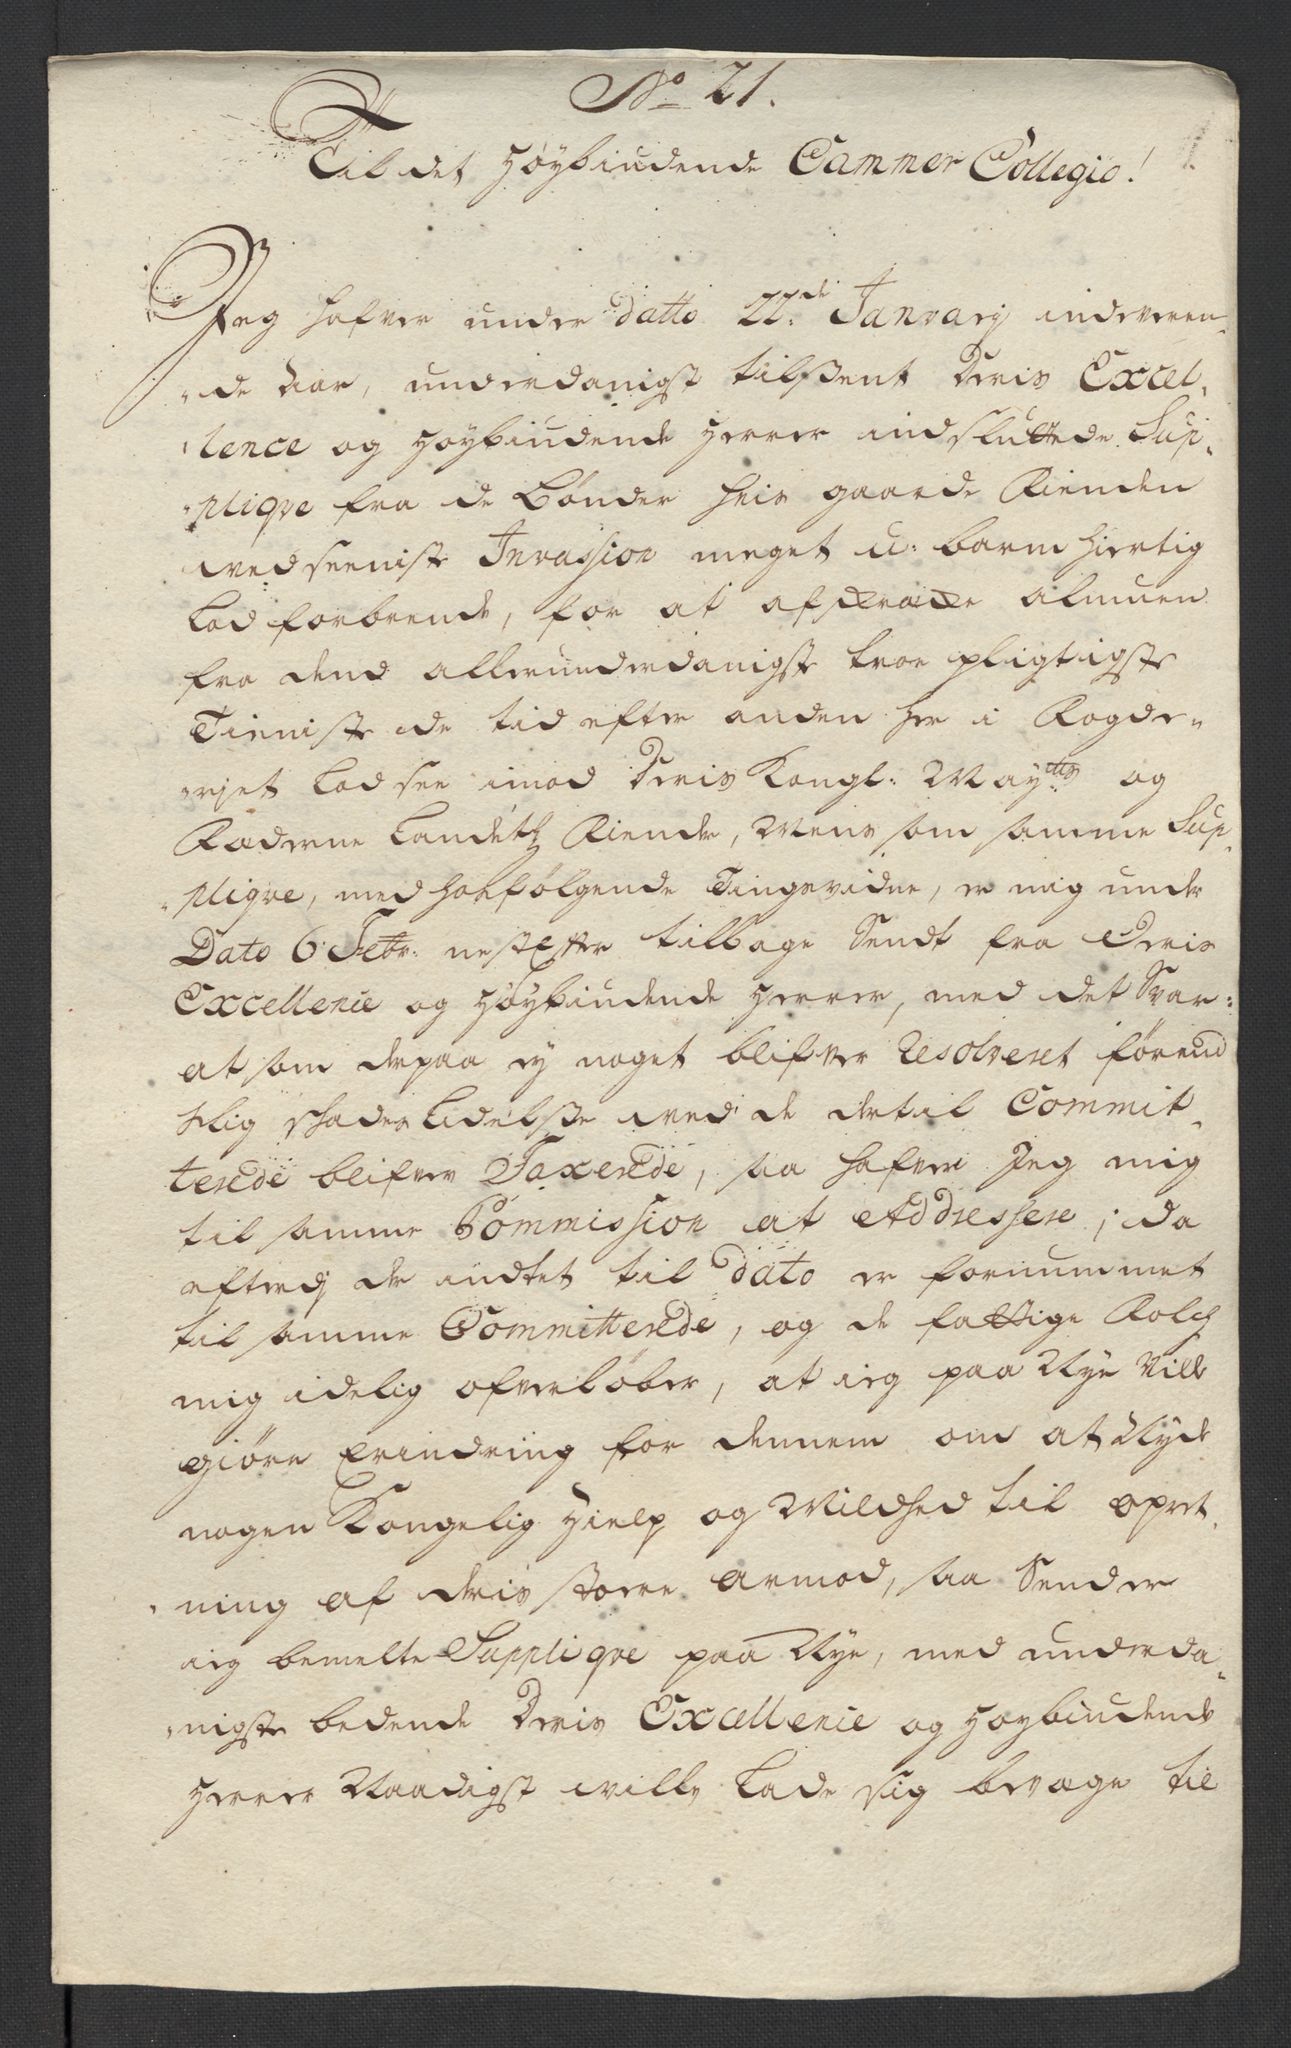 No 21.
Til det Høybiudende Cammer Collegio!
Jeg hafver under datto 22de Janvarij indeveren-
-de Aar, underdanigst tilsent Deris Excel-
-lence og Høybiudende Herrer indsluttede Sup-
-pliqve fra de Bønder hvis gaarde Fienden
ved seeniste Invassion meget u-barmhiertig
lod forbrende, for at afskrække almuen
fra dend allerunderdanigste troe pligtigste
Tieniste de tid efter anden her i Fogde-
-riet lod see imod Deris Kongl: Mayts og
Fæderne Landetz Fiender, Mens som samme Sup-
-pliqve, med hosfølgende Tingsvidne, er mig under
Dato 6 Febr: nest Effter tilbage Sendt fra Deris
Excellence og Høybiudende Herrer, med det Svar:
at som derpaa ey noget blifver Resolveret førend
slig schades lidelse ved de dertil Commit-
terede blifver Taxerede, saa hafver Jeg mig
til samme Commission at Addressere; da
efterdj der indtet til dato er fornummet
til samme Committerede, og de fattige Folch
mig idelig ofverløber, at ieg paa Nye Ville
giøre Erindring for dennem om at Nyde
nogen Kongelig Hielp og Mildhed til opret-
-ning af deris store Armod, saa Sender
ieg bemelte Suppliqve paa Nye, med underda-
-nigste bedende Deris Excellence og Høybiudende
Herrer Naadigst ville lade sig bevæge til